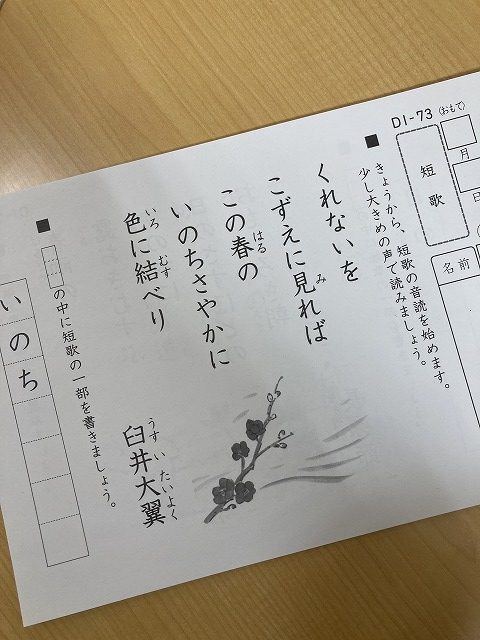 DI-73 (おもて)
月
日
名前
短歌
■ きょうから、短歌の音読を始めます。
少し大きめの声で読みましょう。
くれないを
こずえに見れば
み
この春の
はる
いのちさやかに
色に結べり
いろ
むす
臼井大翼
うすい たいよく
■
の中に短歌の一部を書きましょう。
いのち